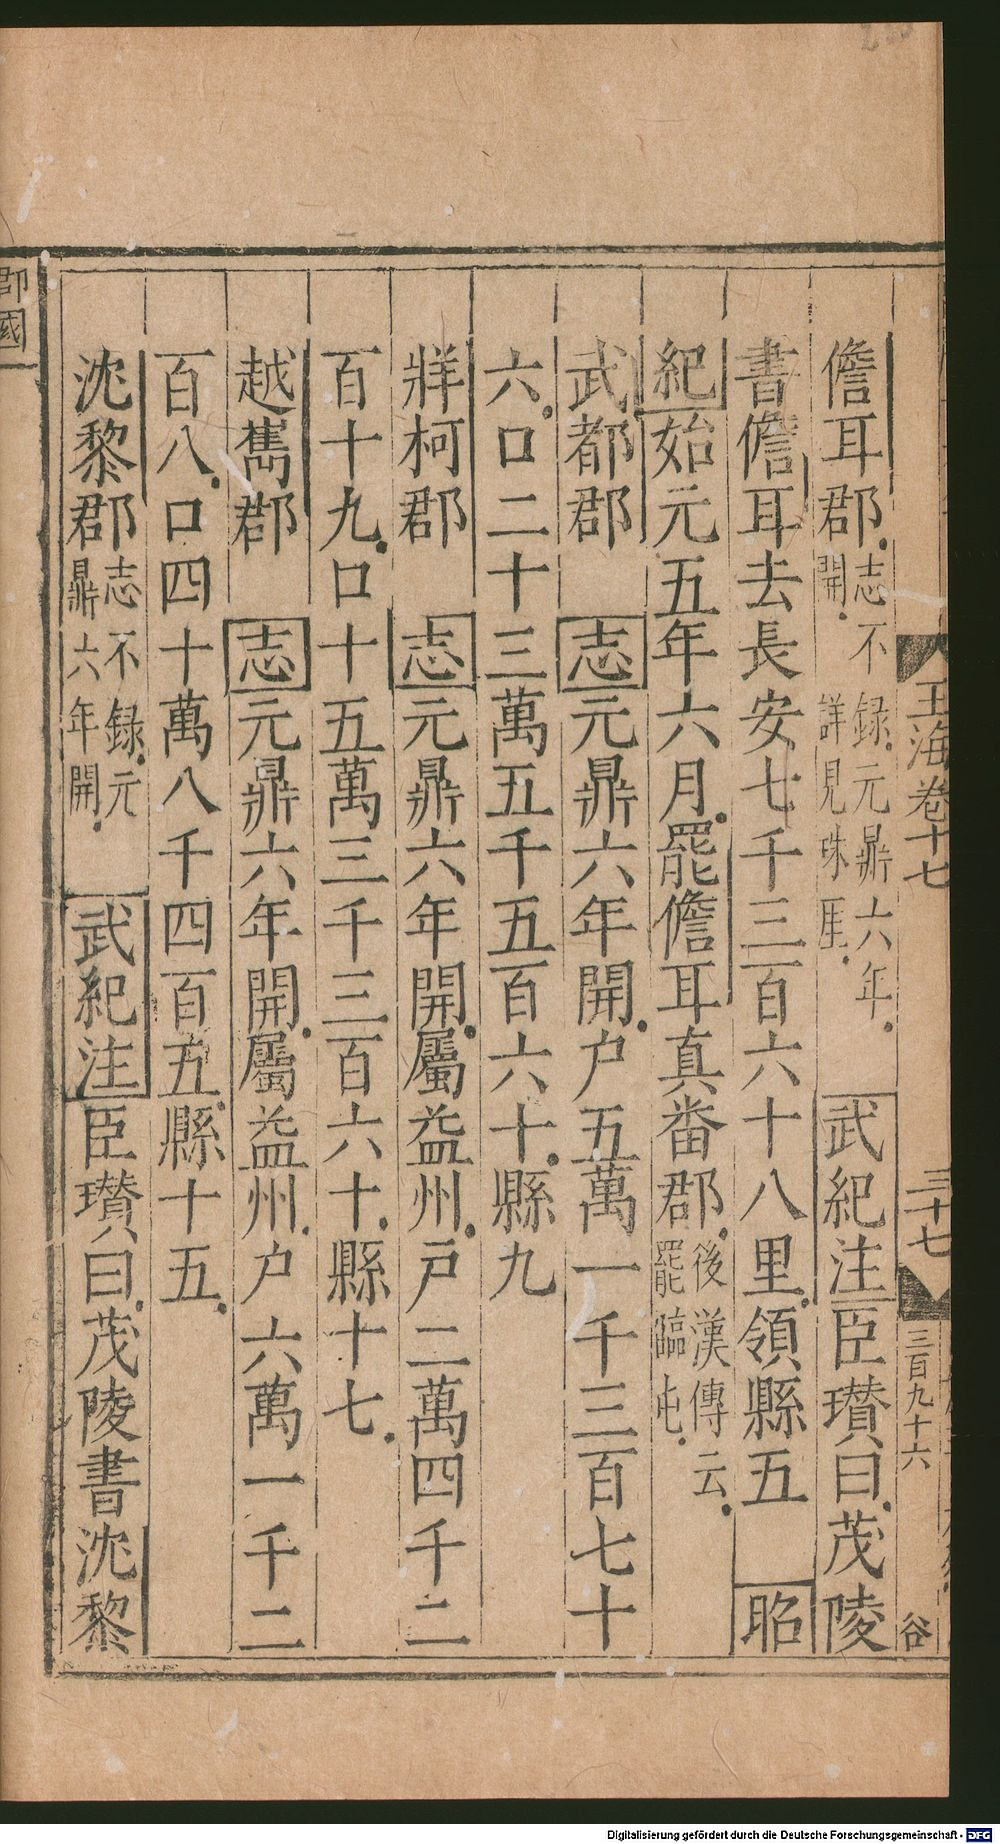 玉海卷十七
三十七
三百九十六
谷
儋耳郡志不録元鼎六年開詳見珠厓武紀注臣瓚曰茂陵
書儋耳去長安七千三百六十八里領縣五昭
紀始元五年六月罷儋耳真番郡後漢傳云罷臨屯
武都郡志元鼎六年開户五萬一千三百七十
六口二十三萬五千五百六十縣九
牂柯郡志元鼎六年開屬益州戸二萬四千二
百十九口十五萬三千三百六十縣十七
越嶲郡志元鼎六年開屬益州户六萬一千二
百八口四十萬八千四百五縣十五
沈黎郡志不録元鼎六年開武紀注臣瓚曰茂陵書沈黎
郡國
Digitalisierung gefördert durch die Deutsche Forschungsgemeinschaft - DFG